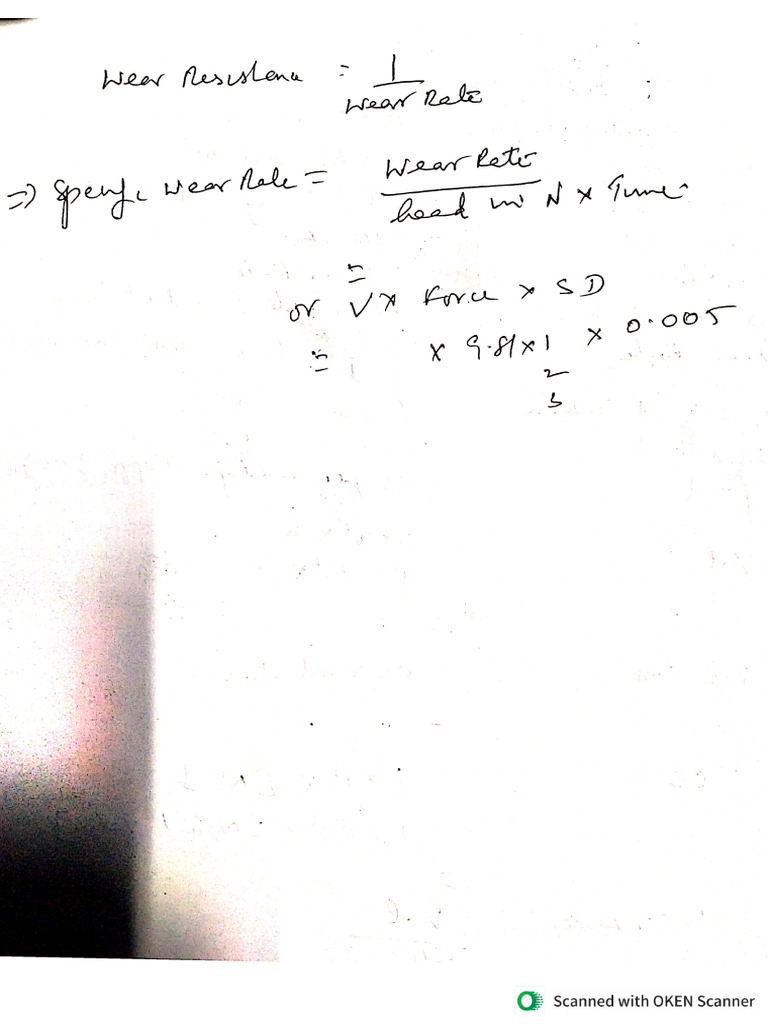 Wear Resistance = 1 / Wear Rate
⇒ Specific Wear Rate = Wear Rate / Load in N × Time
or V × Force × SD
= × 9.81 × 1 × 0.005
2
3
Scanned with OKEN Scanner